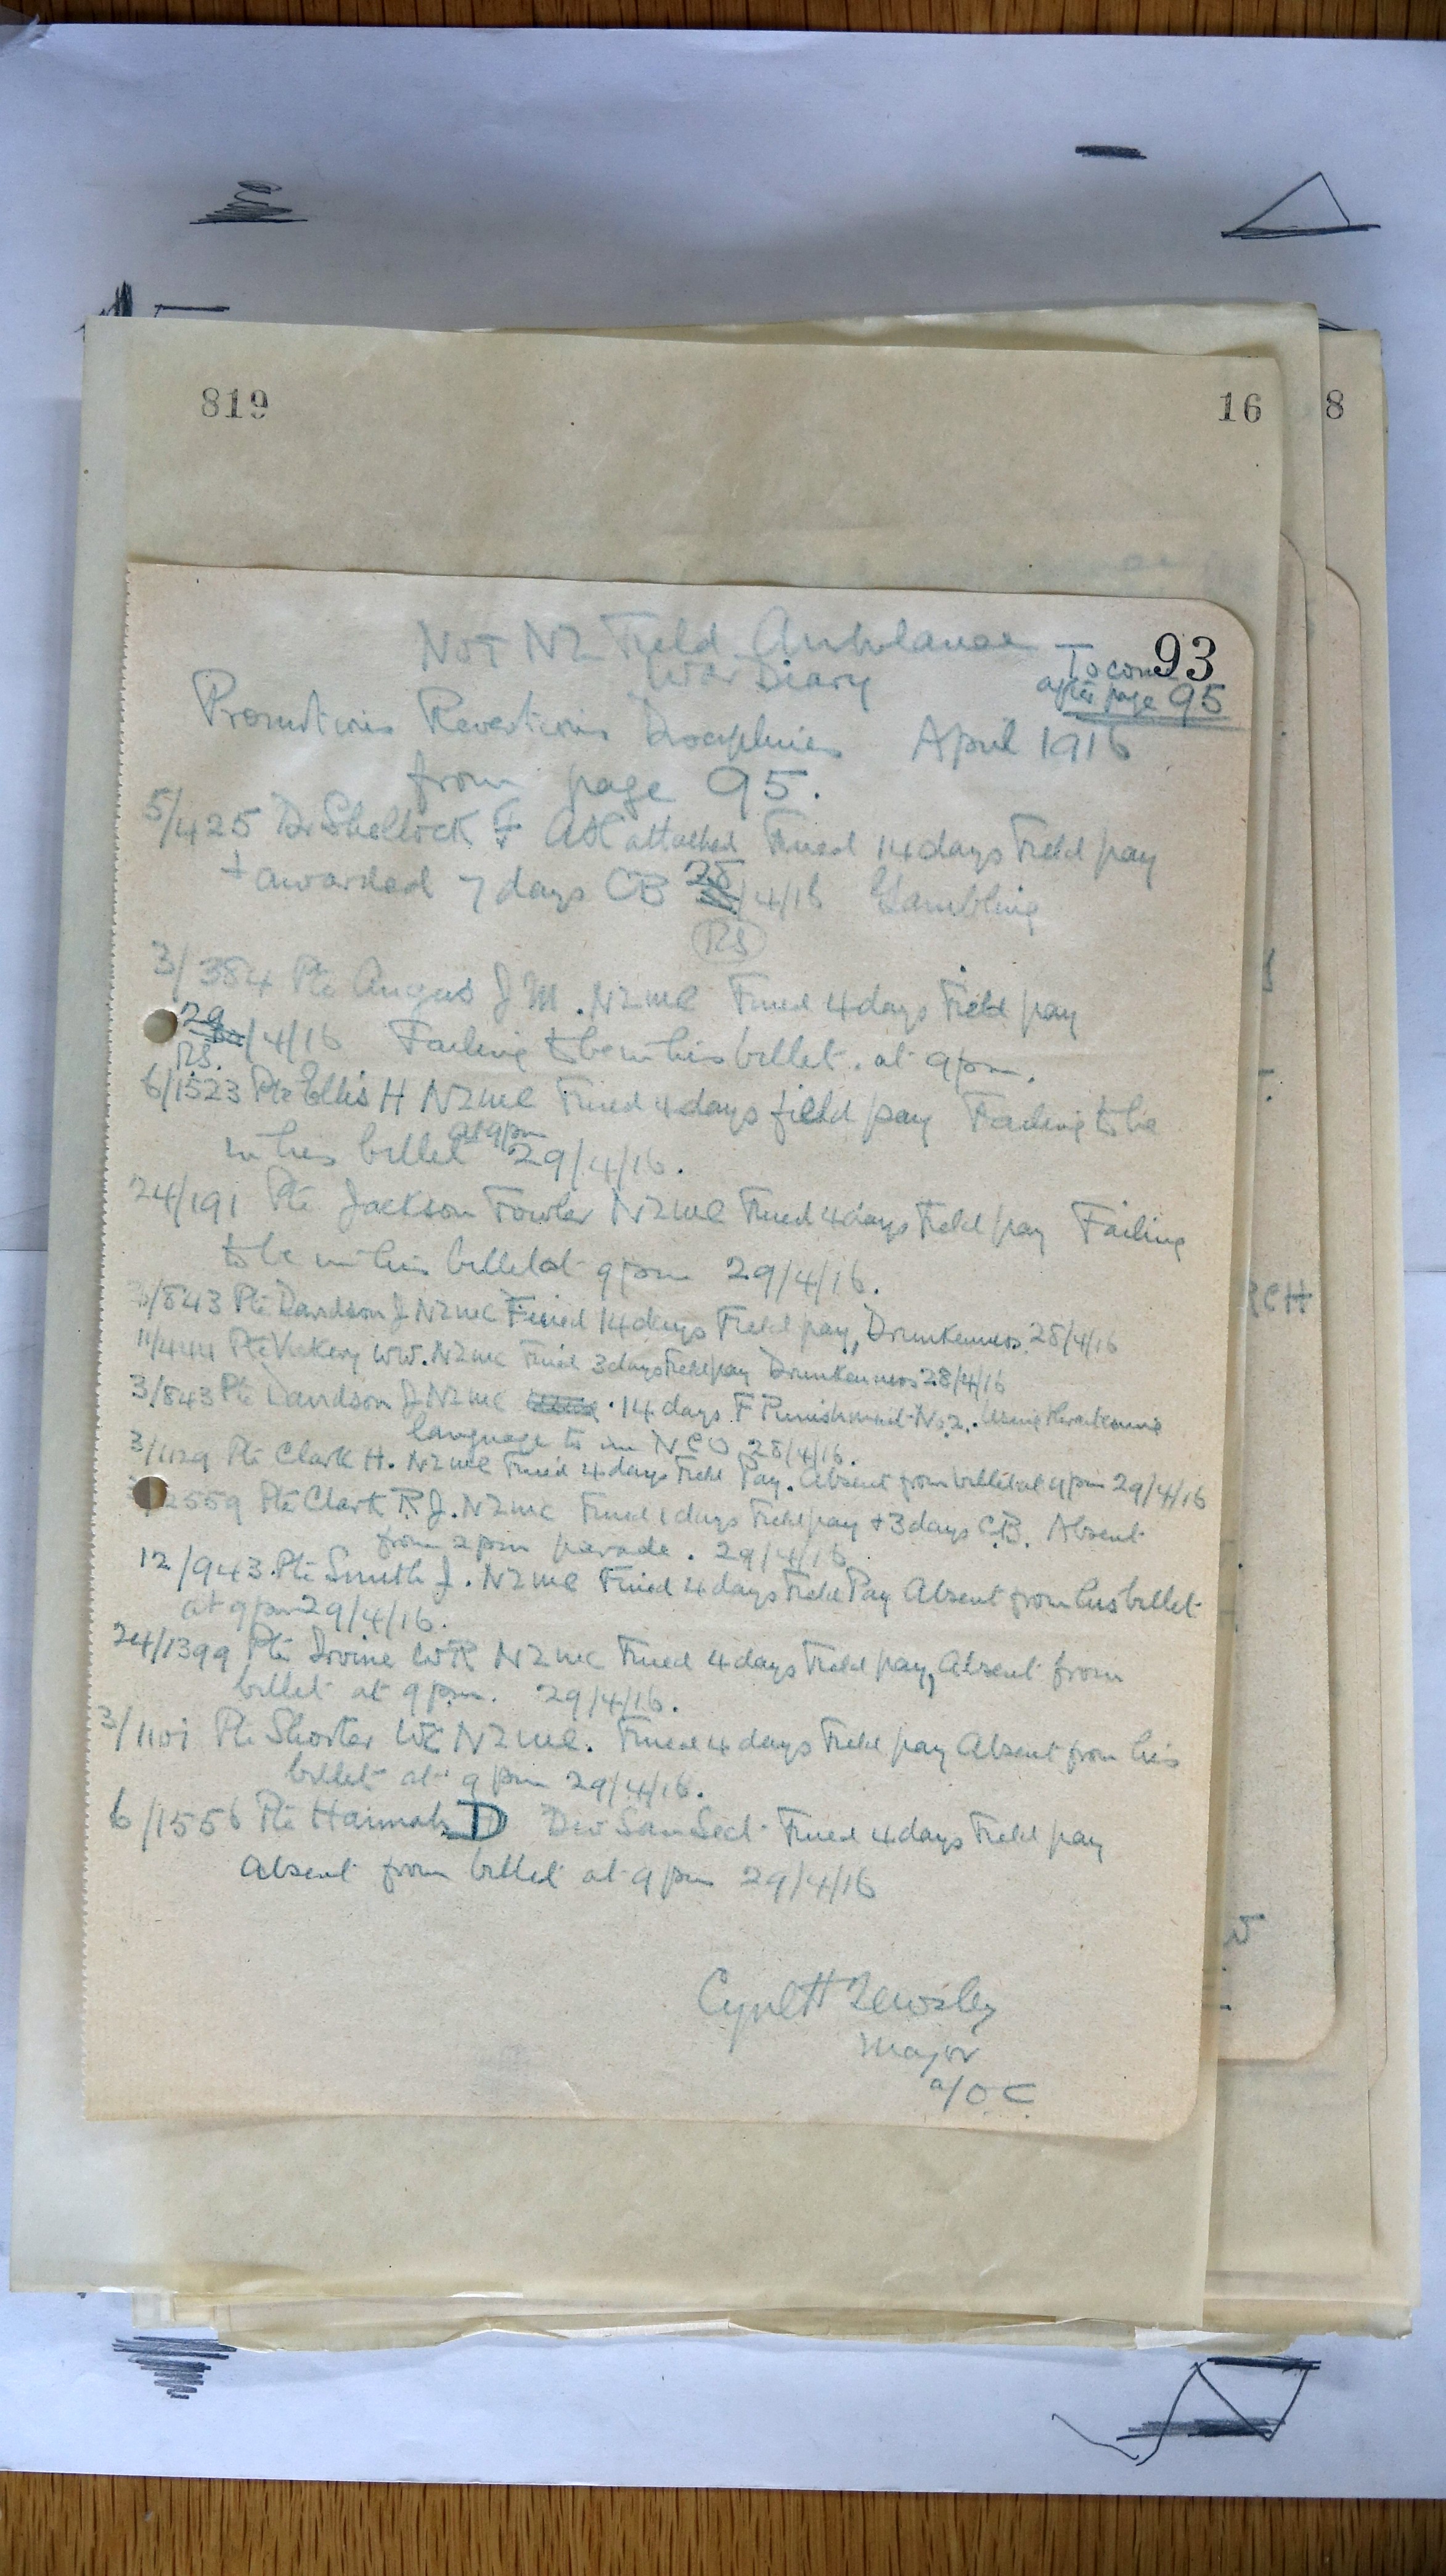 819
16
8
No 1 NZ Field Ambulance
War Diary
93
To come
after page 95
Promotions Reversions Disciplines April 1916
from page 95.
5/425 Dr Shellock F ASC attached Fined 14 days Field pay
+ awarded 7 days CB 28/4/16 Gambling
RS
3/384 Pte Angus J M. NZMC Fined 4 days Field pay
29/4/16 Failing to be in his billet. at 9pm.
RS.
6/1523 Pte Ellis H NZMC Fined 4 days field pay Failing to be
in his billet at 9pm 29/4/16.
24/191 Pte Jackson Fowler NZMC Fined 4 days Field pay Failing
to be in his billet at 9pm 29/4/16.
3/843 Pte Davidson J NZMC Fined 14 days Field pay, Drunkenness 28/4/16
11/444 Pte Vickery WW. NZMC Fined 3 days Field pay Drunkenness 28/4/16
3/843 Pte Davidson J NZMC 14 days F Punishment No 2. Using threatening
language to an NCO 28/4/16.
3/1129 Pte Clark H. NZMC Fined 4 days Field Pay. Absent from billet at 9pm 29/4/16
2559 Pte Clark R J. NZMC Fined 1 days Field pay + 3 days C.B. Absent
from 2pm parade. 29/4/16.
12/943. Pte Smith J. NZMC Fined 4 days Field Pay Absent from his billet
at 9pm 29/4/16.
24/1399 Pte Irvine WR NZMC Fined 4 days Field pay, Absent from
billet at 9pm. 29/4/16.
3/1101 Pte Shorter WE NZMC. Fined 4 days Field pay Absent from his
billet at 9pm 29/4/16.
6/1556 Pte Hannah D Div San Sect. Fined 4 days Field pay
Absent from billet at 9pm 29/4/16
Cyril H Tewsley
Major
a/O C
RCH